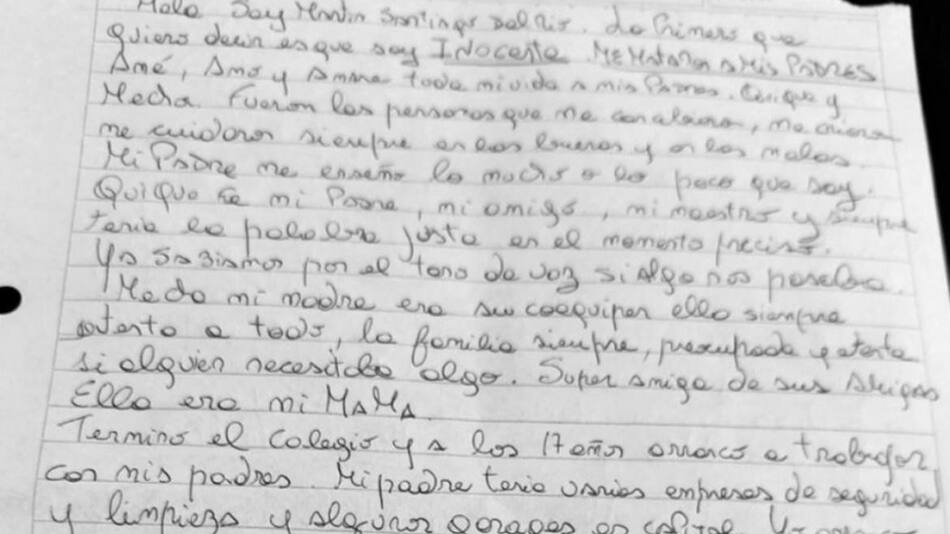 Hola Soy Martín Santiago Del Rio. Lo Primero que
quiero decir es que soy Inocente. ME MATARON A MIS PADRES
Amé, Amo y Amare toda mi vida a mis Padres. Quique y
Mecha. Fueron las personas que me me criaron
me cuidaron siempre en los buenos y en los malos.
Mi Padre me enseño lo mucho o lo poco que soy.
Quique fue mi Padre, mi amigo, mi maestro y siempre
tenia la palabra justa en el momento preciso.
Ya sabiamos por el tono de voz si algo nos pasaba.
Mecha mi madre era su coequiper ella siempre
atenta a todo, la familia siempre, preocupada y atenta
si alguien necesitaba algo. Super amiga de sus Amigas
Ella era mi MAMA.
Termino el colegio y a los 17 años arranco a trabajar
con mis padres. Mi padre tenia varias empresas de seguridad
y limpieza y algunos garages en capital.